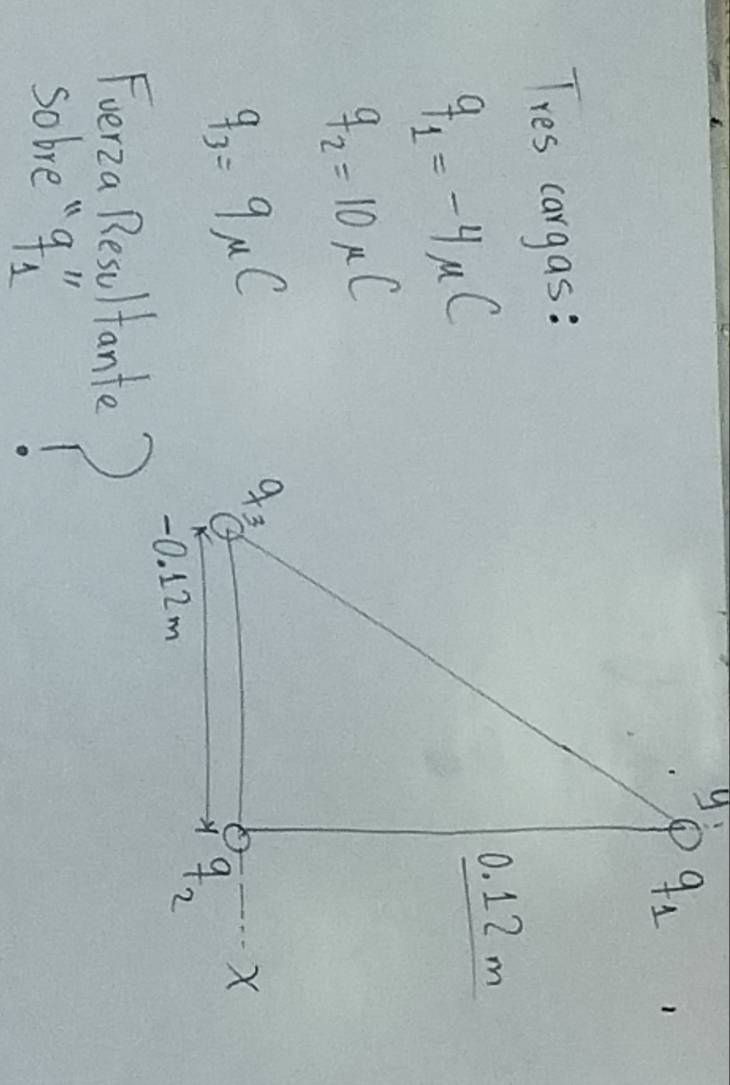 Tres cargas:
q1 = -4 μC
q2 = 10 μC
q3 = 9 μC
Fuerza Resultante
sobre "q1"
?
y
q1
0.12 m
q3
q2
x
-0.12 m